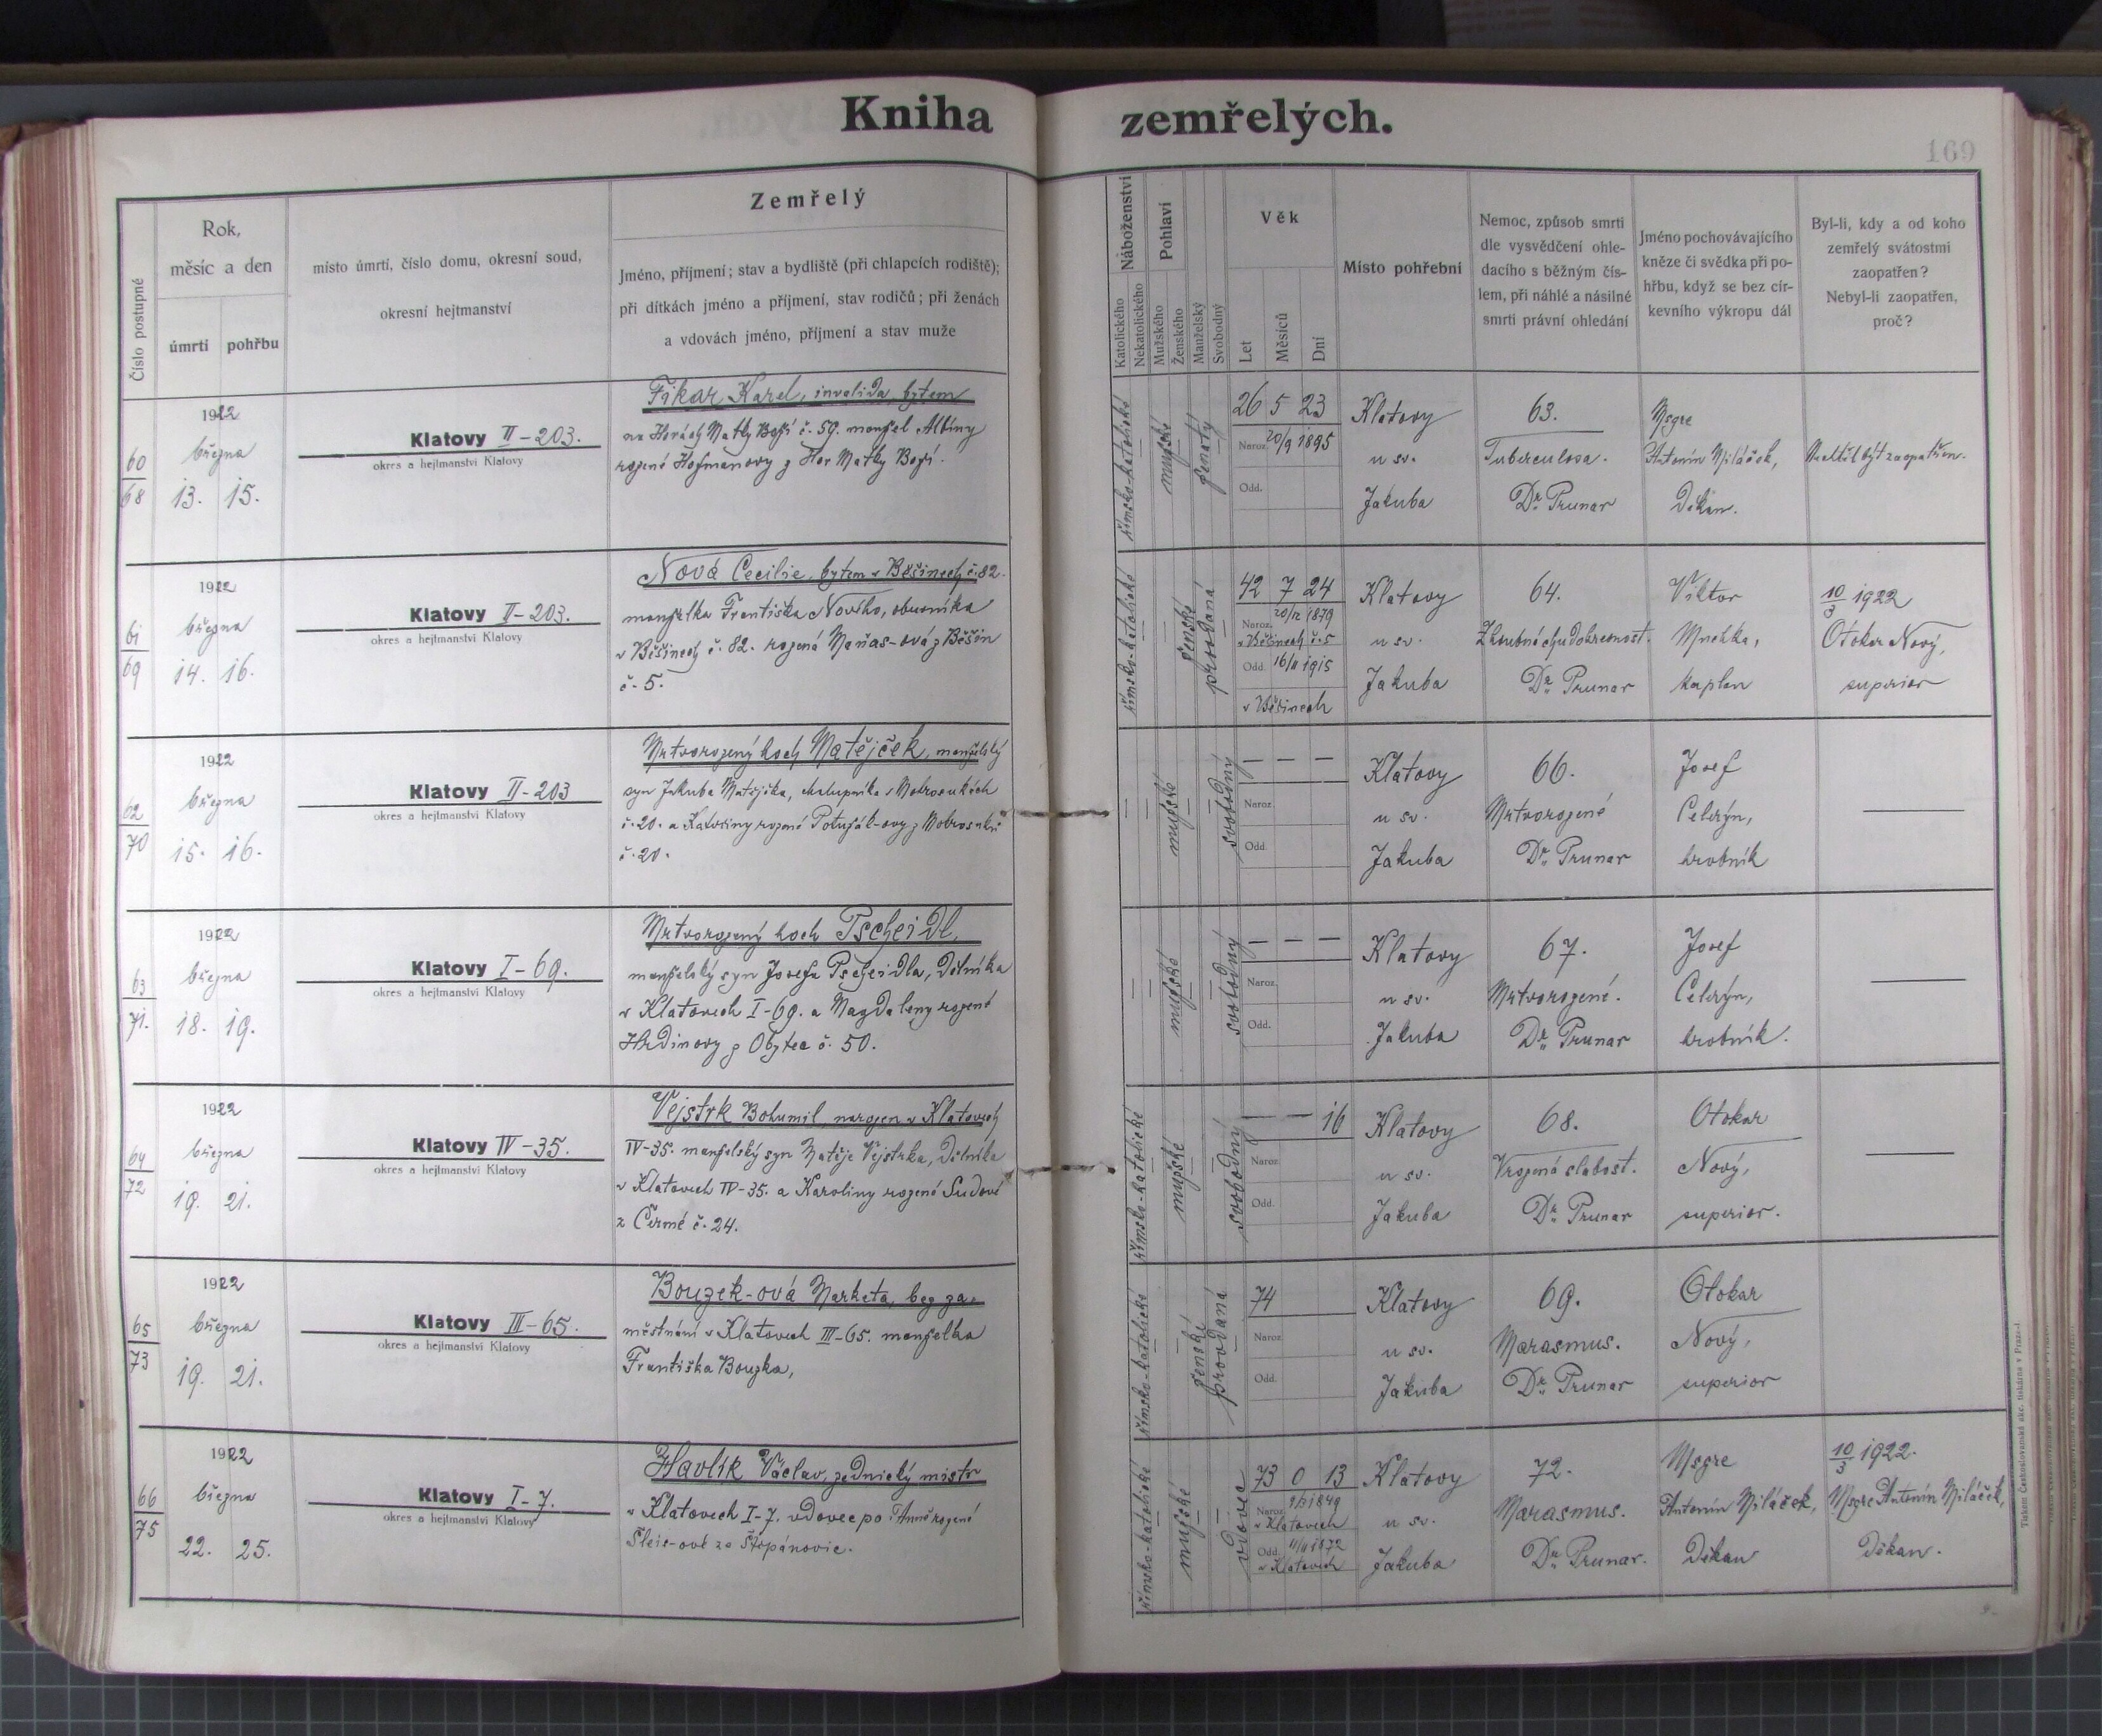 Kniha zemřelých.
169
Číslo postupné
Rok,
měsíc a den
úmrtí pohřbu
místo úmrtí, číslo domu, okresní soud,
okresní hejtmanství
Zemřelý
Jméno, příjmení; stav a bydliště (při chlapcích rodiště);
při dítkách jméno a příjmení, stav rodičů; při ženách
a vdovách jméno, příjmení a stav muže
Náboženství
Katolického
Nekatolického
Pohlaví
Mužského
Ženského
Manželský
Svobodný
Věk
Let
Měsíců
Dní
Místo pohřební
Nemoc, způsob smrti
dle vysvědčení ohle-
dacího s běžným čís-
lem, při náhlé a násilné
smrti právní ohledání
Jméno pochovávajícího
kněze či svědka při po-
hřbu, když se bez cír-
kevního výkropu dál
Byl-li, kdy a od koho
zemřelý svátostmi
zaopatřen?
Nebyl-li zaopatřen,
proč?
60
68
1922
března
13. 15.
Klatovy II-203.
okres a hejtmanství Klatovy
Fikar Karel, invalida, bytem
na Horách Matky Boží č. 59. manžel Albíny
rozené Hofmanovy z Hor Matky Boží.
římsko-katolické
mužské
ženatý
26 5 23
Naroz. 20/9 1895
Odd.
Klatovy
u sv.
Jakuba
63.
Tuberculosa.
Dr. Prunar
Msgre
Antonín Miláček,
Děkan.
Nechtěl býti zaopatřen.
61
69
1922
března
14. 16.
Klatovy II-203.
okres a hejtmanství Klatovy
Nová Cecilie, bytem v Běšinech č. 82.
manželka Františka Nového, obuvníka
v Běšinech č. 82. rozená Maňas-ová z Běšin
č. 5.
římsko-katolické
ženské
provdaná
42 7 24
Naroz. 20/12 1879
v Běšinech č. 5
Odd. 16/11 1915
v Běšinech
Klatovy
u sv.
Jakuba
64.
Zhoubná chudokrevnost.
Dr. Prunar
Viktor
Mnehka,
kaplan
10/3 1922
Otokar Nový,
superior
62
70
1922
března
15. 16.
Klatovy II-203
okres a hejtmanství Klatovy
Mrtvorozený hoch Matějček, manželský
syn Jakuba Matějčka, chalupníka v Makrosukách
č. 20. a Kateřiny rozené
č. 20.
mužské
svobodný
— — —
Naroz.
Odd.
Klatovy
u sv.
Jakuba
66.
Mrtvorozené
Dr. Prunar
Josef
Celerýn,
hrobník
63
71.
1922
března
18. 19.
Klatovy I-69.
okres a hejtmanství Klatovy
Mrtvorozený hoch Pscheidl,
manželský syn Josefa Pscheidla, Dělníka
v Klatovech I-69. a Magdaleny rozené
Hrdinovy z Obytec č. 50.
mužské
svobodný
— — —
Naroz.
Odd.
Klatovy
u sv.
Jakuba
67.
Mrtvorozené.
Dr. Prunar
Josef
Celerýn,
hrobník.
64
72
1922
března
19. 21.
Klatovy IV-35.
okres a hejtmanství Klatovy
Vejstrk Bohumil, narozen v Klatovech
IV-35. manželský syn Matěje Vejstrka, Dělníka
v Klatovech IV-35. a Karoliny rozené Sudové
z Černé č. 24.
římsko-katolické
mužské
svobodný
— — 16
Naroz.
Odd.
Klatovy
u sv.
Jakuba
68.
Vrozená slabost.
Dr. Prunar
Otokar
Nový,
superior.
65
73
1922
března
19. 21.
Klatovy III-65.
okres a hejtmanství Klatovy
Bouzek-ová Marketa, bez za-
městnání v Klatovech III-65. manželka
Františka Bouzka,
římsko-katolické
ženské
provdaná
74
Naroz.
Odd.
Klatovy
u sv.
Jakuba
69.
Marasmus.
Dr. Prunar
Otokar
Nový,
superior
66
75
1922
března
22. 25.
Klatovy I-7.
okres a hejtmanství Klatovy
Havlík Václav, zednický mistr
v Klatovech I-7. vdovec po Anně rozené
Šleis-ové ze Štěpánovic.
římsko-katolické
mužské
vdovec
73 0 13
Naroz. 9/3 1849
v Klatovech
Odd. 11/11 1872
v Klatovech
Klatovy
u sv.
Jakuba
72.
Marasmus.
Dr. Prunar.
Msgre
Antonín Miláček,
Děkan
10/3 1922.
Msgre Antonín Miláček,
Děkan.
Tiskem Českoslovanské akc. tiskárna v Praze-I.